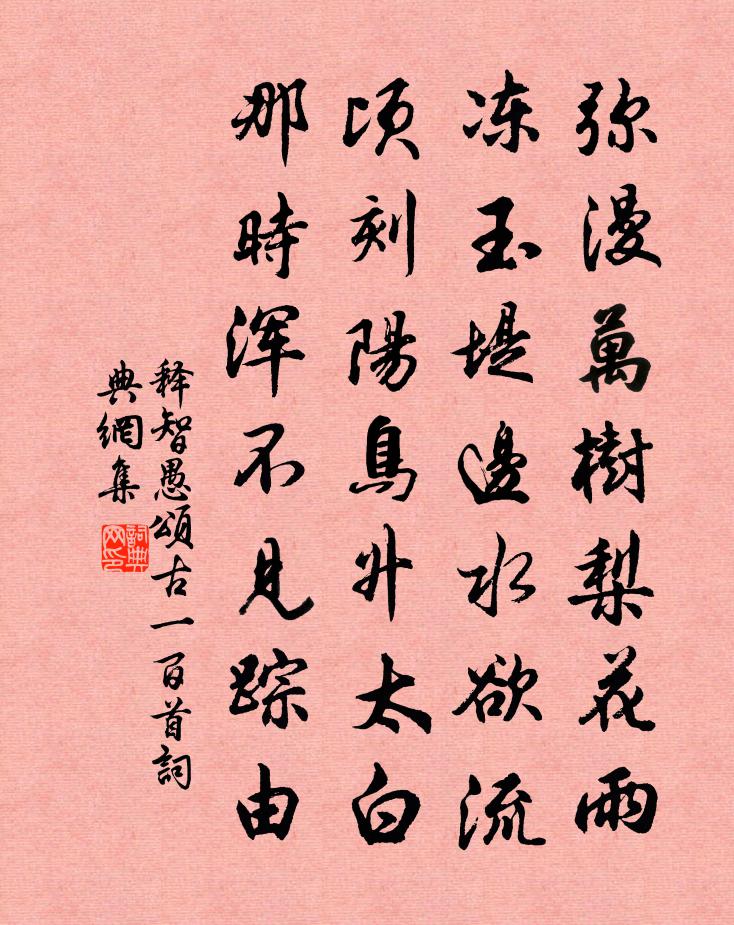 弥漫萬樹梨花雨
冻玉堤邊水欲流
顷刻陽鳥升太白
那時浑不見踪由
释智愚頌古一百首詞
典網集
詞典
网印